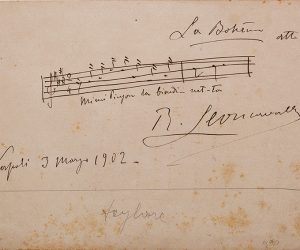 La Bohème atto
Mimì Pinson la biondi-net-ta
R. Leoncavallo
Napoli 3 Marzo 1902.